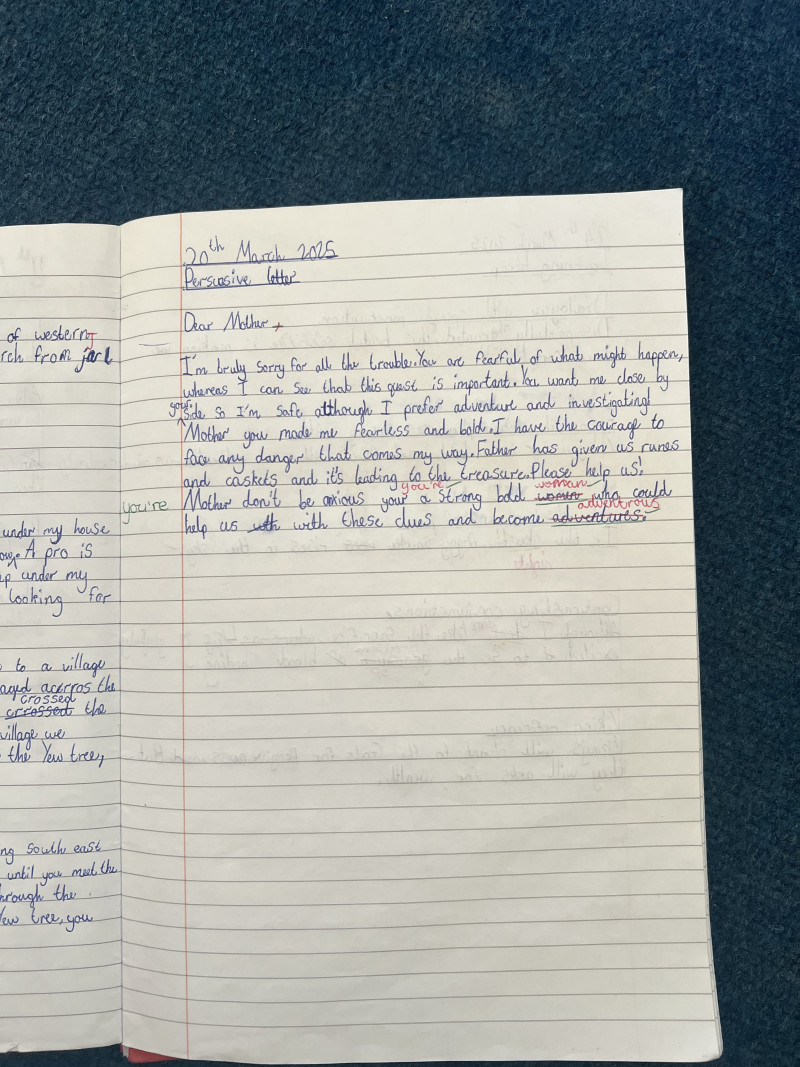 of western
rch from jarl
under my house
A pro is
up under my
looking for
to a village
aged acrros the
crossed
crrossed the
village we
the Yew tree,
ng South east
until you meet the
hrough the
Yew tree, you
20th March 2025
Persuasive letter
Dear Mother,
I'm truly sorry for all the trouble. You are fearful of what might happen,
whereas I can see that this quest is important. You want me close by
your
side so I'm safe although I prefer adventure and investigating!
Mother you made me fearless and bold. I have the courage to
face any danger that comes my way. Father has given us runes
and caskets and it's leading to the treasure. Please help us!
you're woman
you're
Mother don't be anxious your a strong bold women who could
adventrous
help us with with these clues and become adventures.